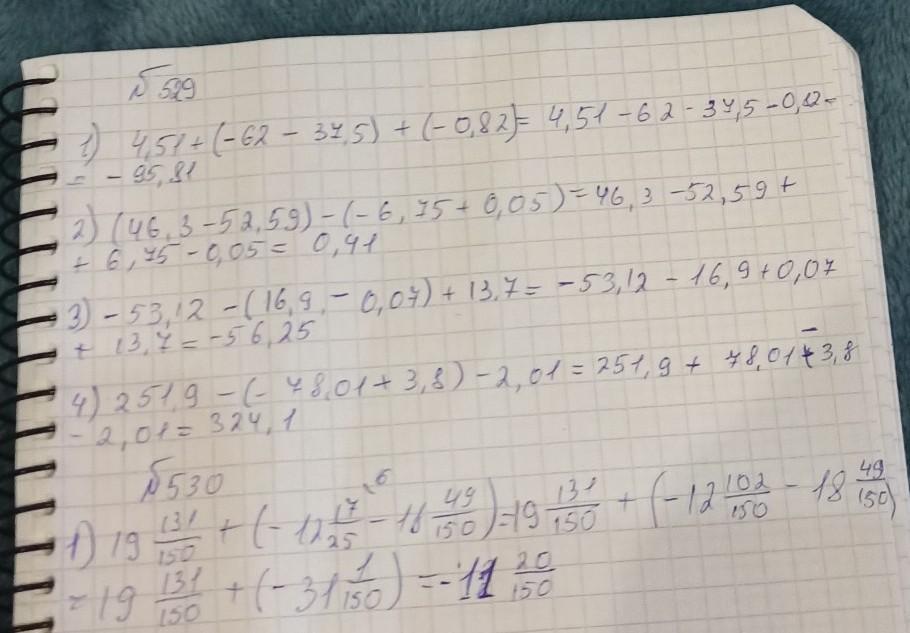 № 529
1) 4,51 + (-62 - 37,5) + (-0,82) = 4,51 - 62 - 37,5 - 0,82 =
= - 95,81
2) (46,3 - 52,59) - (-6,75 + 0,05) = 46,3 - 52,59 +
+ 6,75 - 0,05 = 0,41
3) - 53,12 - (16,9 - 0,07) + 13,7 = - 53,12 - 16,9 + 0,07
+ 13,7 = -56,25
4) 251,9 - (- 78,01 + 3,8) - 2,01 = 251,9 + 78,01 - 3,8
- 2,01 = 324,1
№ 530
1) 19 131/150 + (- 12 17/25 \6 - 18 49/150) = 19 131/150 + (- 12 102/150 - 18 49/150)
= 19 131/150 + (- 31 1/150) = - 11 20/150